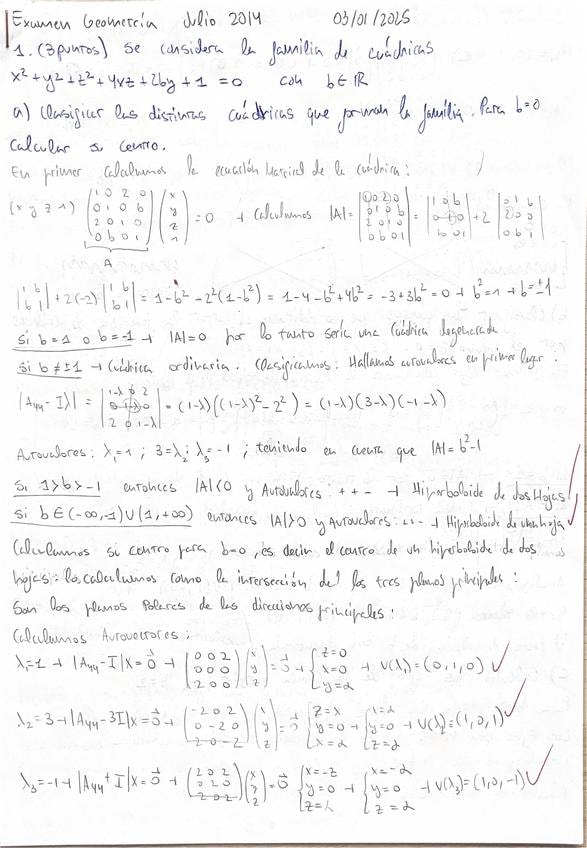 Examen Geometría Julio 2014 03/01/2025
1. (3 puntos) Se considera la familia de cuádricas
x² + y² + z² + 4xz + 2by + 1 = 0 con b ∈ ℝ
a) Clasificar las distintas cuádricas que forman la familia. Para b=0
Calcular su centro.
En primer calculamos la ecuación Matricial de la cuádrica:
(x y z 1) (1 0 2 0 / 0 1 0 b / 2 0 1 0 / 0 b 0 1) (x / y / z / 1) = 0 → Calculamos |A| = |1 0 2 0 / 0 1 0 b / 2 0 1 0 / 0 b 0 1| = |1 0 b / 0 1 0 / b 0 1| + 2 |0 1 b / 2 0 0 / 0 b 1|
A
|1 b / b 1| + 2(-2) |1 b / b 1| = 1-b² - 2²(1-b²) = 1-4-b²+4b² = -3+3b² = 0 → b²=1 → b=±1
Si b=1 o b=-1 → |A|=0 por lo tanto sería una Cuádrica degenerada
Si b≠±1 → Cuádrica ordinaria. Clasificamos: Hallamos autovalores en primer lugar:
|A₄₄ - Iλ| = |1-λ 0 2 / 0 1-λ 0 / 2 0 1-λ| = (1-λ)((1-λ)² - 2²) = (1-λ)(3-λ)(-1-λ)
Autovalores: λ₁=1 ; 3=λ₂ ; λ₃=-1 ; teniendo en cuenta que |A|=b²-1
Si 1>b>-1 entonces |A|<0 y Autovalores: + + - → Hiperboloide de dos Hojas
Si b∈(-∞,-1)∪(1,+∞) entonces |A|>0 y Autovalores: ++- → Hiperboloide de una hoja
Calculamos su centro para b=0, es decir el centro de un hiperboloide de dos
hojas: lo calculamos como la intersección de los tres planos principales:
Son los planos Polares de las direcciones principales:
Calculamos Autovectores:
λ₁=1 → |A₄₄ - I|X = 0⃗ → (0 0 2 / 0 0 0 / 2 0 0) (x / y / z) = 0⃗ → {z=0 / x=0 / y=α → V(λ₁) = (0,1,0)
λ₂=3 → |A₄₄ - 3I|X = 0⃗ → (-2 0 2 / 0 -2 0 / 2 0 -2) (x / y / z) = 0⃗ {z=x / y=0 / x=α → {x=α / y=0 / z=α → V(λ₂) = (1,0,1)
λ₃=-1 → |A₄₄ + I|X = 0⃗ → (2 0 2 / 0 2 0 / 2 0 2) (x / y / z) = 0⃗ {x=-z / y=0 / z=α → {x=-α / y=0 / z=α → V(λ₃) = (1,0,-1)